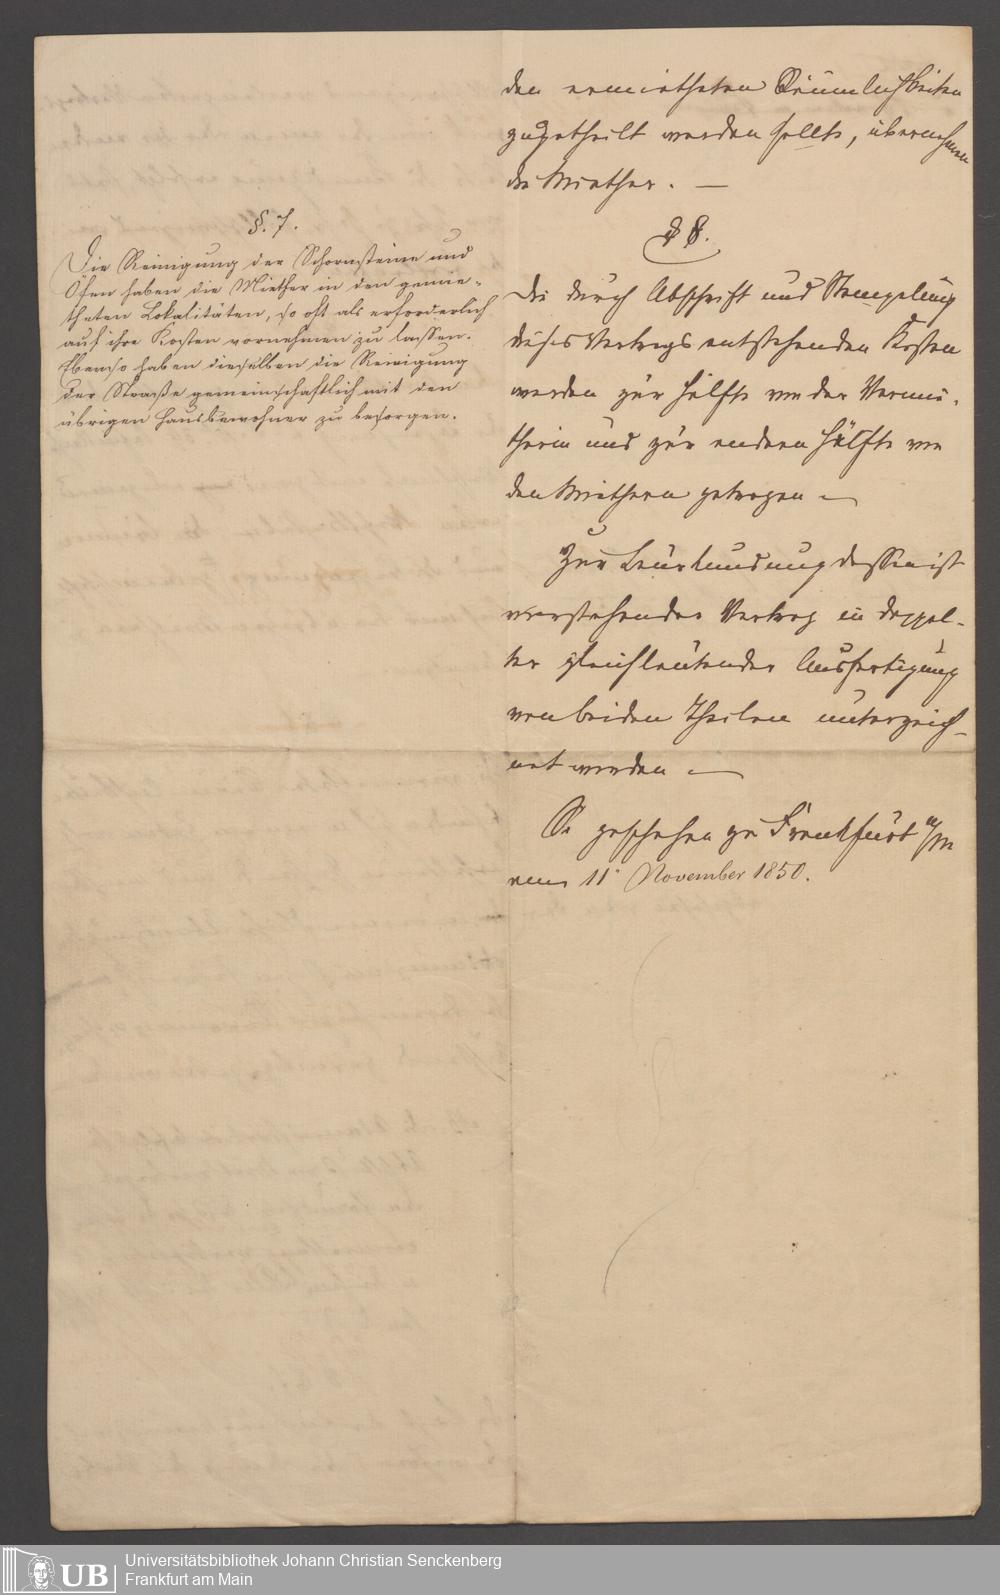 §. 7.
Die Reinigung der Schornsteine und
Öfen haben die Miether in den gemie-
theten Lokalitäten, so oft als erforderlich
auf ihre Kosten vornehmen zu lassen.
Ebenso haben dieselben die Reinigung
der Straaße gemeinschaftlich mit den
übrigen Hausbewohner zu besorgen.
den ermietheten Räumlichkeiten
zugetheilt werden sollte, übernehmen
die Miether. —
§ 8.
Die durch Abschrift und Stempelung
dieses Vertrags entstehenden Kosten
werden zur Hälfte von der Vermie-
therin und zur andern Hälfte von
den Miethern getragen —
Zur Beurkundung dessen ist
vorstehender Vertrag in doppel-
ter gleichlautender Ausfertigung
von beiden Theilen unterzeich-
net worden —
So geschehen zu Frankfurt a/m
11. November 1850.
Universitätsbibliothek Johann Christian Senckenberg
Frankfurt am Main
UB